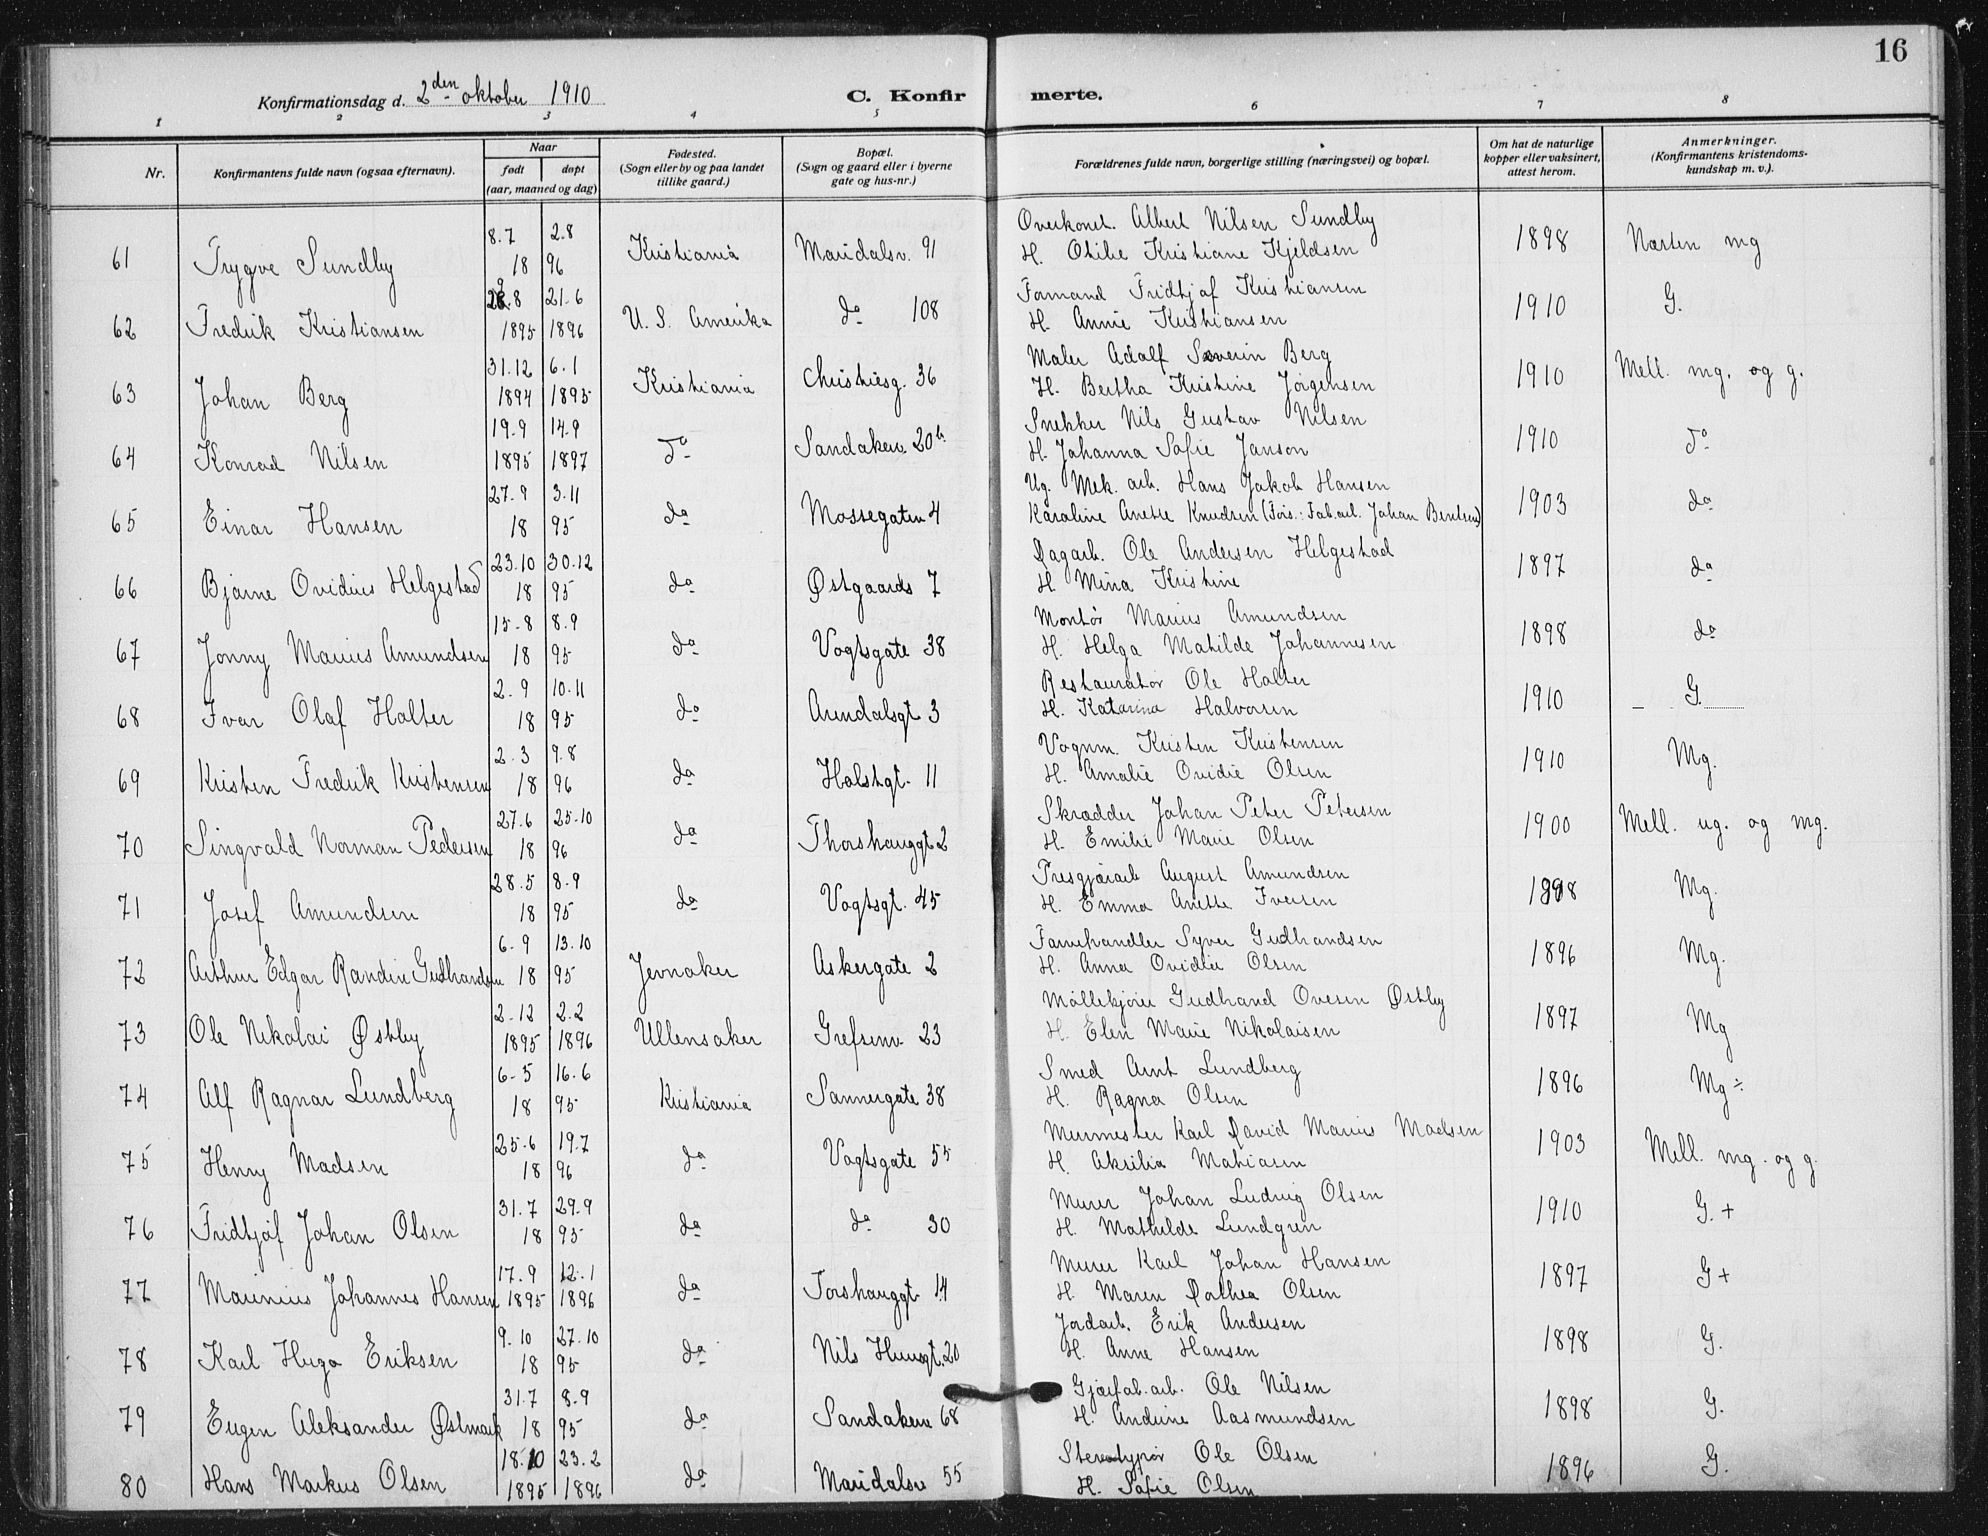 16
Konfirmationsdag d. 2den oktober 1910
C. Konfir merte.
1 2 3 4 5 6 7 8
Nr.
Konfirmantens fulde navn (ogsaa efternavn).
Naar
født døpt
(aar, maaned og dag)
Fødested.
(Sogn eller by og paa landet
tillike gaard.)
Bopæl.
(Sogn og gaard eller i byerne
gate og hus-nr.)
Forældrenes fulde navn, borgerlige stilling (næringsvei) og bopæl.
Om hat de naturlige
kopper eller vaksinert,
attest herom.
Anmerkninger.
(Konfirmantens kristendoms-
kundskap m. v.).
8.7 2.8 Overkonst. Albert Nilsen Sundby
61 Trygve Sundby 18 96 Kristiania Maridalsv. 91 H. Othilie Kristiane Kjeldsen 1898 Næsten mg
8 21.6 Formand Fridtjof Kristiansen
62 Fredrik Kristiansen 1895 1896 U. S. Amerika do 108 H. Annie Kristiansen 1910 G.
31.12 6.1 Maler Adolf Severin Berg
63 Johan Berg 1894 1895 Kristiania Christiesg. 36 H. Bertha Kristine Jørgensen 1910 Mell. mg. og g.
19.9 14.9 Snekker Nils Gustav Nilsen
64 Konrad Nilsen 1895 1897 do Sandakerv. 20b H. Johanna Sofie Janson 1910 do
27.9 3.11 Ug. Mek. arb. Hans Jakob Hansen
65 Einar Hansen 18 95 do Mossegaten 4 Karoline Anette Knudsen (Fors.: Fab.arb. Johan Bentsen) 1903 do
23.10 30.12 Dagarb. Ole Andersen Helgestad
66 Bjarne Ovidius Helgestad 18 95 do Østgaards 7 H Mina Kristine 1897 do
15.8 8.9 Montør Marius Amundsen
67 Jonny Marius Amundsen 18 95 do Vogtsgate 38 H. Helga Matilde Johannesen 1898 do
2.9 10.11 Restauratør Ole Holter
68 Ivar Olaf Holter 18 95 do Arendalsgt 3 H. Katarina Halvorsen 1910 G.
2.3 9.8 Vognm. Kristen Kristensen
69 Kristen Fredrik Kristensen 18 96 do Holstgt. 11 H. Amalie Ovidie Olsen 1910 Mg.
27.6 25.10 Skrædder Johan Peter Petersen
70 Singvald Norman Pedersen 18 96 do Thorshauggt 2 H. Emilie Marie Olsen 1900 Mell. ug. og mg.
28.5 8.9 Presgjærarb August Amundsen
71 Josef Amundsen 18 95 do Vogtsgt. 45 H. Emma Anette Iversen 1898 Mg.
6.9 13.10 Farvehandler Syver Gudbrandsen
72 Arthur Edgar Randin Gudbrandsen 18 95 Jevnaker Askergate 2 H. Anna Ovidia Olsen 1896 Mg.
2.12 2.2 Møllekjører Gudbrand Ovesen Østby
73 Ole Nikolai Østby 1895 1896 Ullensaker Grefsenv. 23 H. Elen Marie Nikolaisen 1897 Mg
6.5 16.6 Smed Arnt Lundberg
74 Alf Ragnar Lundberg 18 95 Kristiania Sannergate 38 H. Ragna Olsen 1896 Mg÷
25.6 19.7 Murmester Karl David Marius Madsen
75 Henry Madsen 18 96 do Vogtsgate 55 H. Akselia Mathiasen 1903 Mell. mg. og g.
31.7 29.9 Murer Johan Ludvig Olsen
76 Fridtjof Johan Olsen 18 95 do do 30 H. Mathilde Lundgren 1910 G.+
17.9 12.1 Murer Karl Johan Hansen
77 Marinius Johannes Hansen 1895 1896 do Torshauggt. 14 H. Maren Dorthea Olsen 1897 G+
9.10 27.10 Jordarb. Erik Andersen
78 Karl Hugo Eriksen 18 95 do Nils Huusgt. 20 H. Anne Hansen 1898 G.
31.7 8.9 Gjærfab.arb. Ole Nilsen
79 Eugen Aleksander Østmark 18 95 do Sandakerv 68 H. Andrine Aasmundsen 1898 G.
18.10 23.2 Stereotypør Ole Olsen
80 Hans Markus Olsen 1895 1896 do Maridalsv 55 H. Sofie Olsen 1896 G.